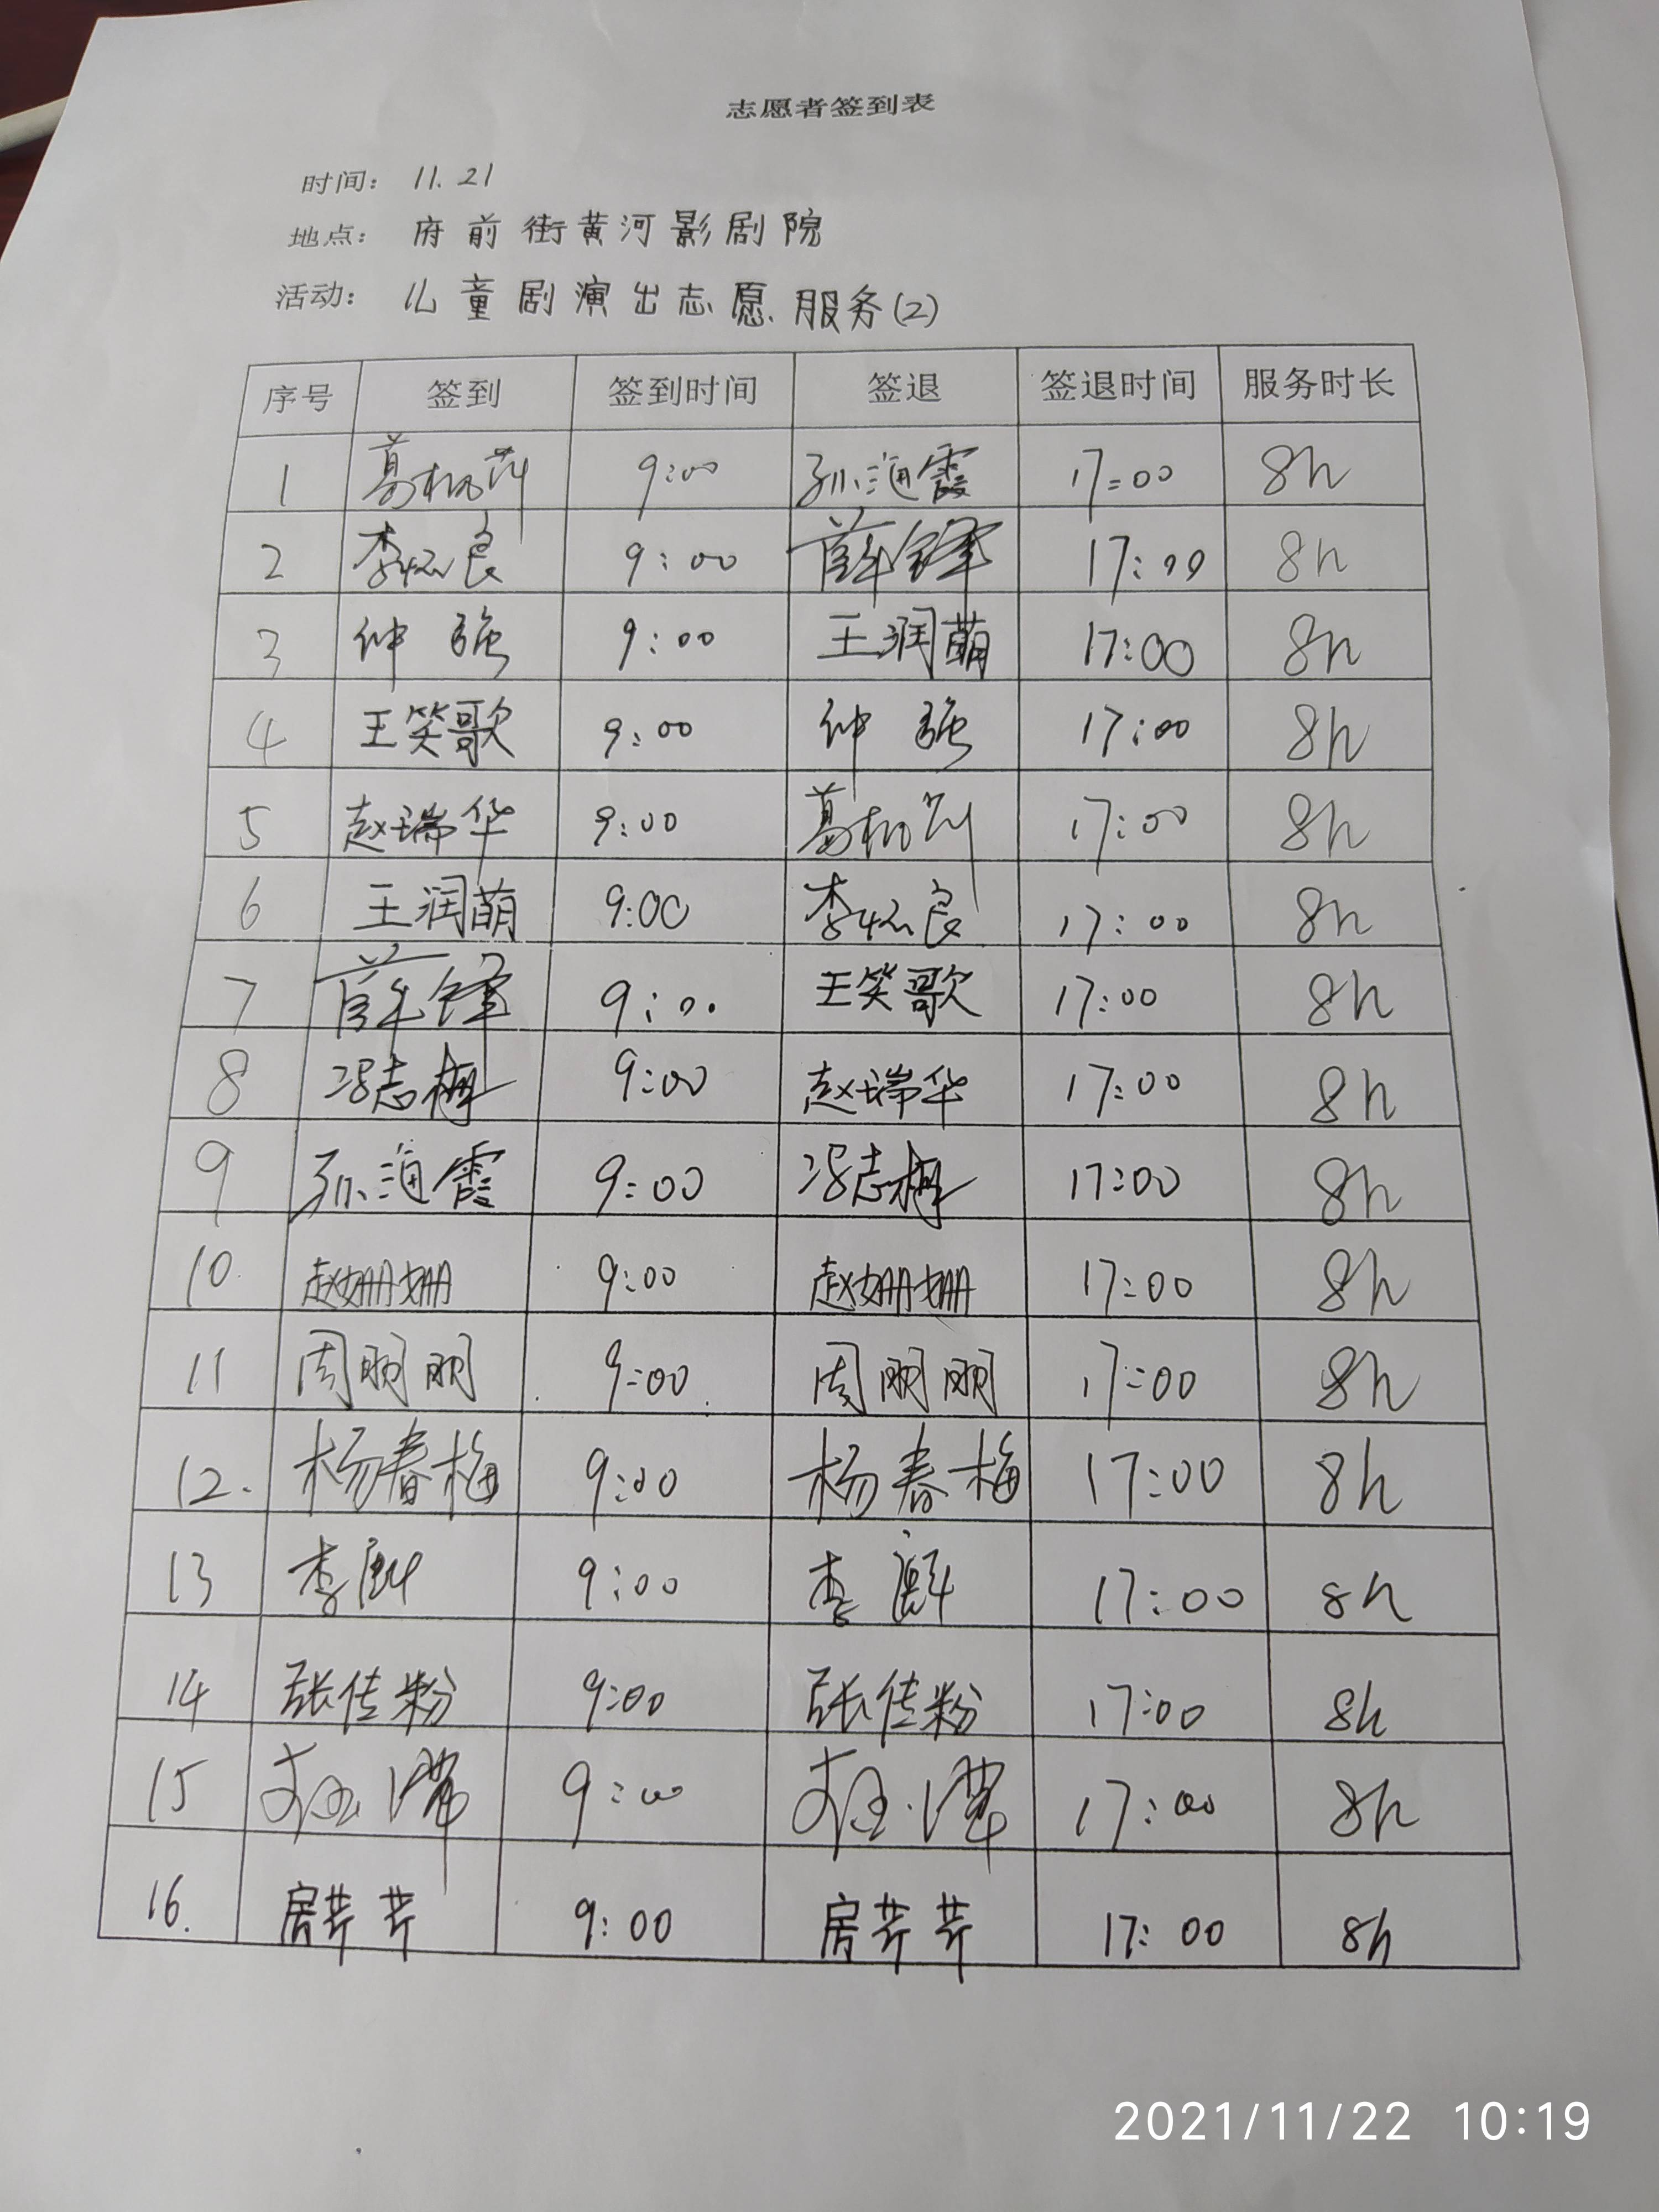 志愿者签到表
时间： 11.21
地点： 府前街黄河影剧院
活动： 儿童剧演出志愿服务(2)
序号 签到 签到时间 签退 签退时间 服务时长
1 9:00 孙海霞 17:00 8h
2 李怀良 9:00 薛锋 17:00 8h
3 仲强 9:00 王润萌 17:00 8h
4 王笑歌 9:00 仲强 17:00 8h
5 赵瑞华 9:00 17:00 8h
6 王润萌 9:00 李怀良 17:00 8h
7 薛锋 9:00 王笑歌 17:00 8h
8 冯志梅 9:00 赵瑞华 17:00 8h
9 孙海霞 9:00 冯志梅 17:00 8h
10. 赵姗姗 9:00 赵姗姗 17:00 8h
11 周丽丽 9:00 周丽丽 17:00 8h
12. 杨春梅 9:00 杨春梅 17:00 8h
13 李 9:00 李 17:00 8h
14 张佳粉 9:00 张佳粉 17:00 8h
15 9:00 17:00 8h
16. 房芹芹 9:00 房芹芹 17:00 8h
2021/11/22 10:19